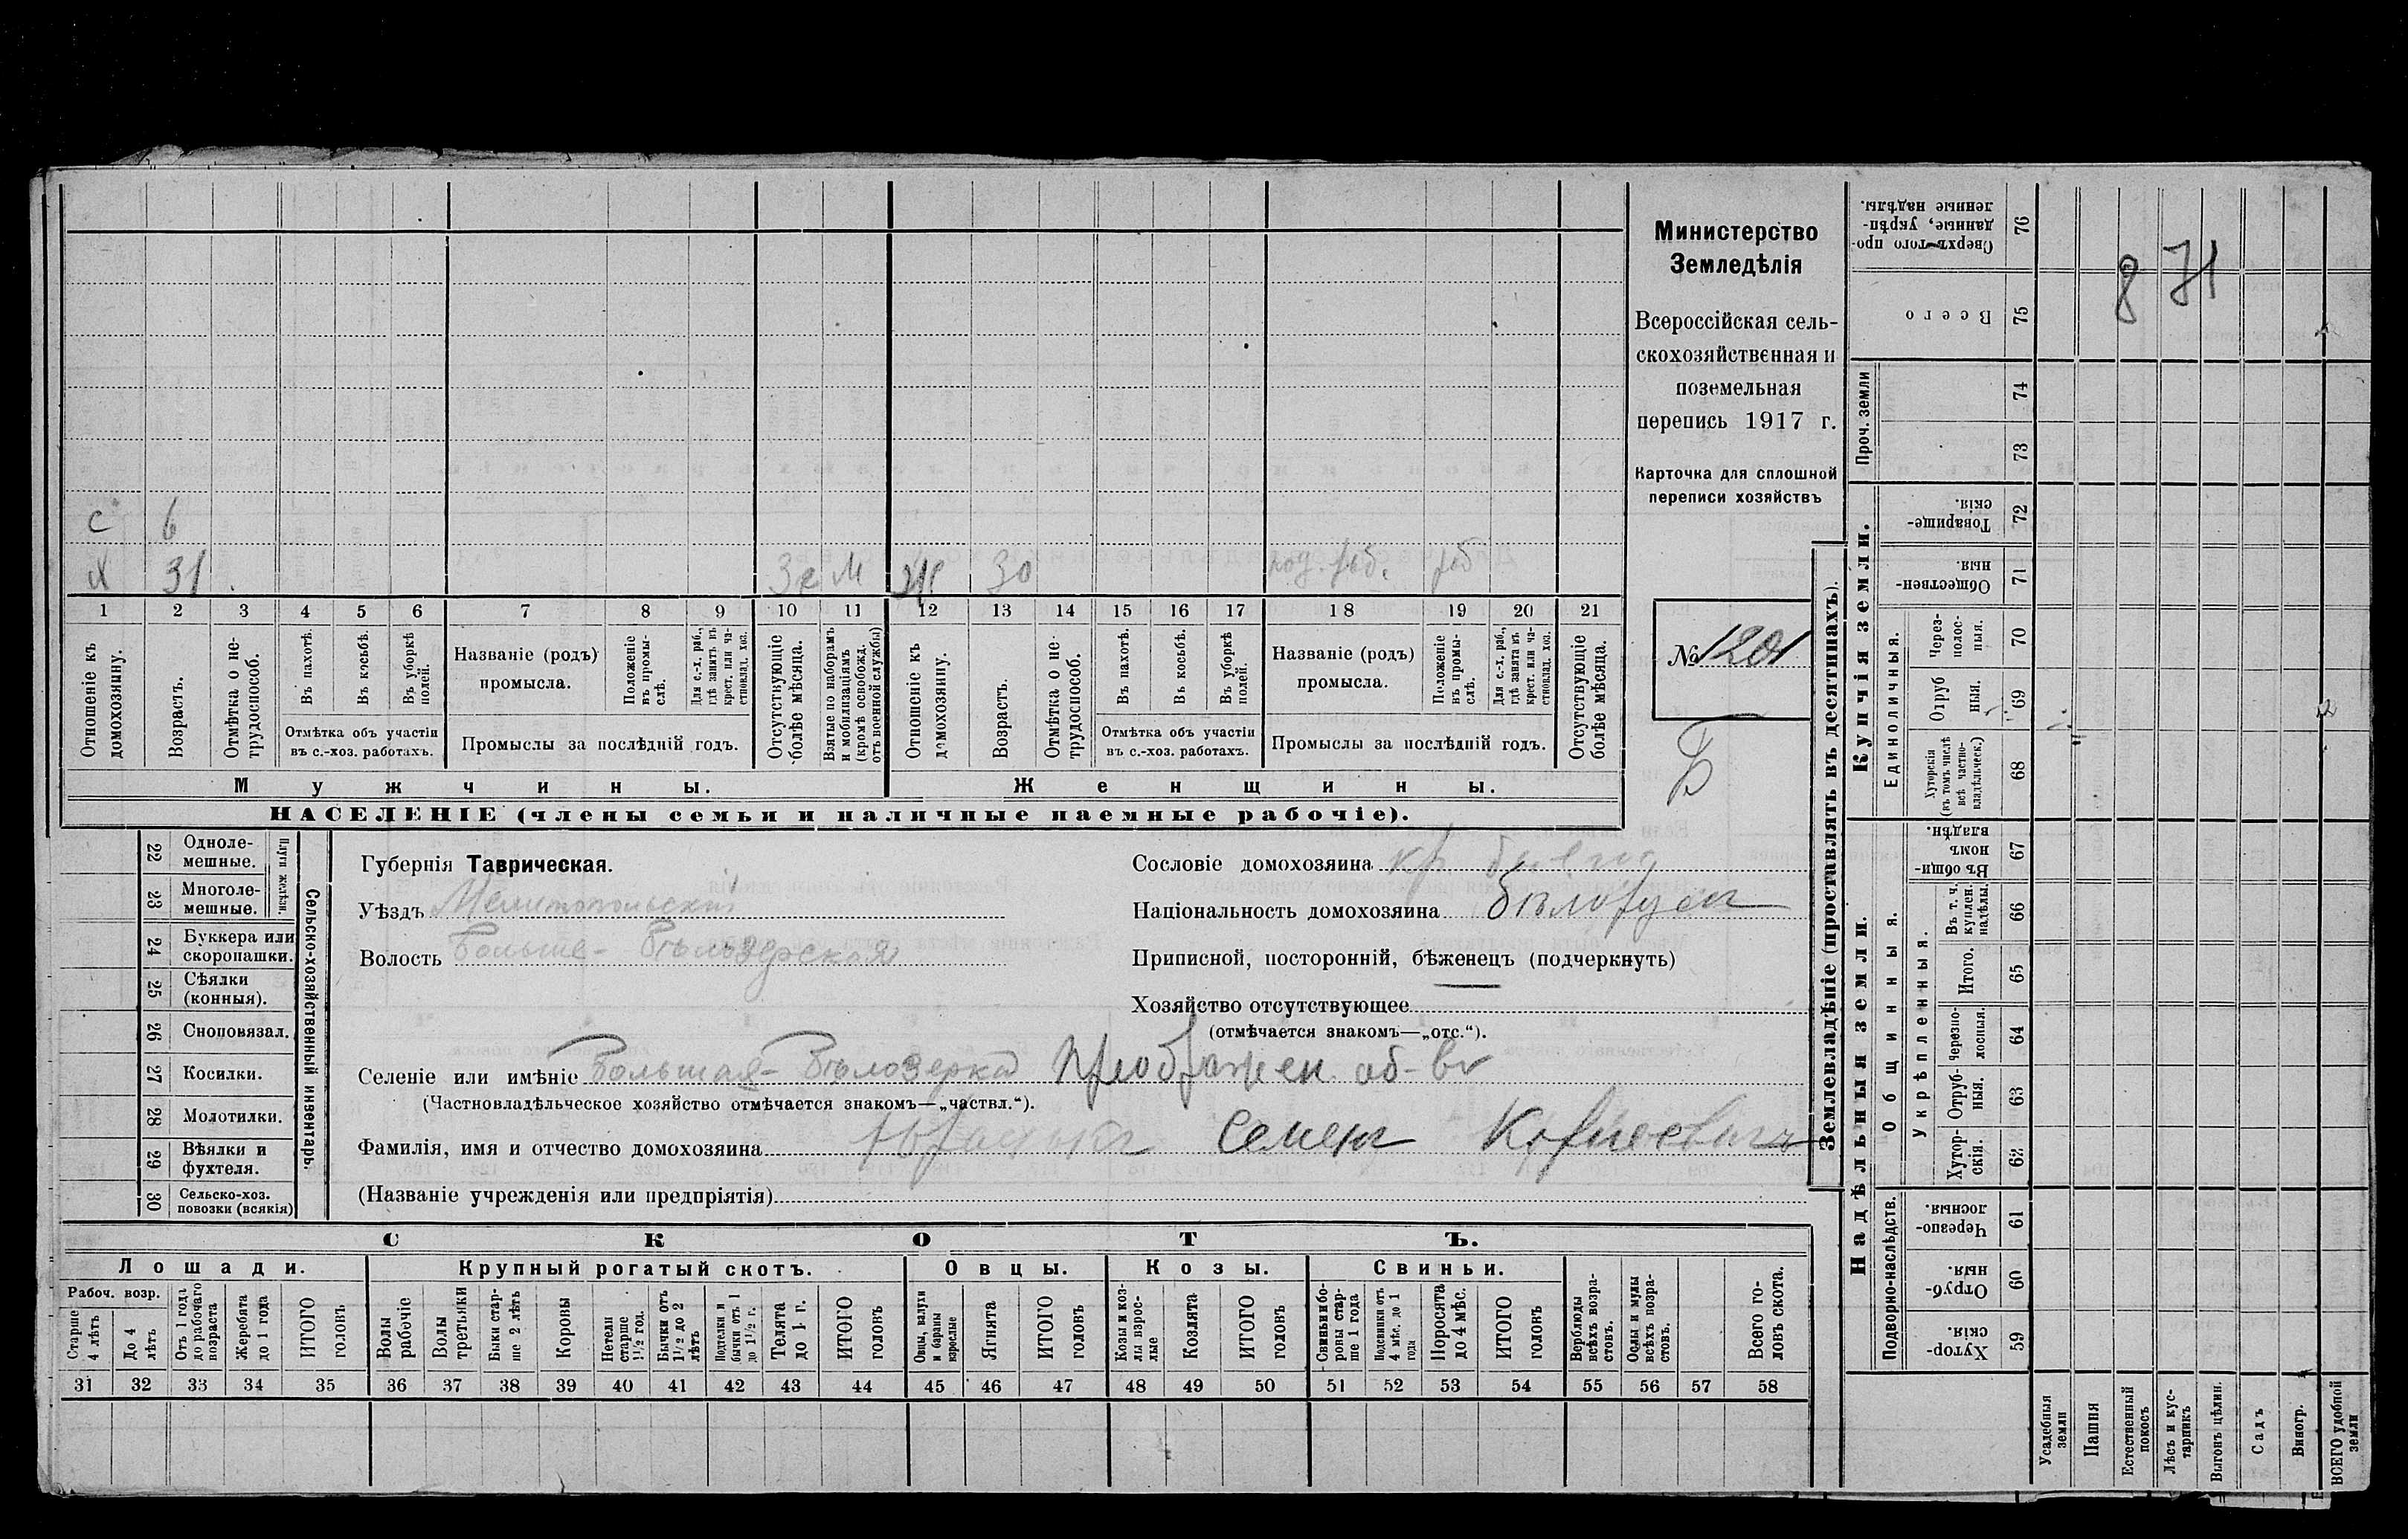 Министерство
Земледѣлія
Всероссійская сель-
скохозяйственная и
поземельная
перепись 1917 г.
Карточка для сплошной
переписи хозяйствъ
№ 1201
Б
с 6
х 31 М Ж 30 под. раб. раб
1 2 3 4 5 6 7 8 9 10 11 12 13 14 15 16 17 18 19 20 21
Отношеніе къ домохозяину.
Возрастъ.
Отмѣтка о не-трудоспособ.
Въ пахотѣ.
Въ косьбѣ.
Въ уборкѣ полей.
Отмѣтка объ участіи
въ с.-хоз. работахъ.
Названіе (родъ)
промысла.
Положеніе въ промы-слѣ.
Для с.-х. раб., гдѣ занятъ въ крест. или ча-стновлад. хоз.
Промыслы за послѣдній годъ.
Отсутствующіе болѣе мѣсяца.
Взятые по наборамъ и мобилизаціямъ (кромѣ освобожд. отъ военной службы)
Отношеніе къ домохозяину.
Возрастъ.
Отмѣтка о не-трудоспособ.
Въ пахотѣ.
Въ косьбѣ.
Въ уборкѣ полей.
Отмѣтка объ участіи
въ с.-хоз. работахъ.
Названіе (родъ)
промысла.
Положеніе въ промы-слѣ.
Для с.-х. раб., гдѣ занята въ крест. или ча-стновлад. хоз.
Промыслы за послѣдній годъ.
Отсутствующіе болѣе мѣсяца.
Мужчины.
Женщины.
НАСЕЛЕНІЕ (члены семьи и наличные наемные рабочіе).
22 Одноле-мешные.
23 Многоле-мешные.
Плуги желѣзн.
24 Буккера или скоропашки.
25 Сѣялки (конныя).
26 Сноповязал.
27 Косилки.
28 Молотилки.
29 Вѣялки и фухтеля.
30 Сельско-хоз. повозки (всякія)
Сельско-хозяйственный инвентарь.
Губернія Таврическая.
Уѣздъ Мелитопольскій
Волость Больше-Бѣлозерская
Сословіе домохозяина кр.
Національность домохозяина бѣлорусъ
Приписной, посторонній, бѣженецъ (подчеркнуть)
Хозяйство отсутствующее
(отмѣчается знакомъ—„отс.“).
Селеніе или имѣніе Большая-Бѣлозерка Преображен. об-во
(Частновладѣльческое хозяйство отмѣчается знакомъ—„частвл.“).
Фамилія, имя и отчество домохозяина Семенъ Корнеевичъ
(Названіе учрежденія или предпріятія)
СКОТЪ.
Лошади.
Крупный рогатый скотъ.
Овцы.
Козы.
Свиньи.
Рабоч. возр.
Старше 4 лѣтъ
До 4 лѣтъ
Отъ 1 года до рабочаго возраста
Жеребята до 1 года
ИТОГО головъ
Волы рабочіе
Волы третьяки
Быки стар-ше 2 лѣтъ
Коровы
Нетели старше 1½ год.
Бычки отъ 1½ до 2 лѣтъ
Подтелки и бычки отъ 1 до 1½ г.
Телята до 1 г.
ИТОГО головъ
Овцы, валухи и бараны взрослые
Ягнята
ИТОГО головъ
Козы и коз-лы взрос-лые
Козлята
ИТОГО головъ
Свиньи и бо-ровы стар-ше 1 года
Подсвинки отъ 4 мѣс. до 1 года
Поросята до 4 мѣс.
ИТОГО головъ
Верблюды всѣхъ возра-стовъ.
Ослы и мулы всѣхъ возра-стовъ.
Всего го-ловъ скота.
31 32 33 34 35 36 37 38 39 40 41 42 43 44 45 46 47 48 49 50 51 52 53 54 55 56 57 58
Землевладѣніе (проставлять въ десятинахъ).
Надѣльныя земли.
Купчія земли.
Проч. земли
Подворно-наслѣдств.
Общинныя.
Укрѣпленныя.
Единоличныя.
Сверхъ того про-данные, укрѣп-ленные надѣлы. 76
Всего 75
74
73
Товарище-скія. 72
Обществен-ныя. 71
Через-полос-ныя. 70
Отруб ныя. 69
Хуторскія (въ томъ числѣ всѣ частно-владѣльческ.) 68
Въ общин-номъ владѣн. 67
Въ т. ч. куплен. надѣлы. 66
Итого. 65
Черезпо-лосныя. 64
Отруб-ныя. 63
Хутор-скія. 62
Черезпо-лосныя. 61
Отруб-ныя. 60
Хутор-скія. 59
8 71
Усадебныя земли
Пашня
Естественный покосъ
Лѣсъ и кус-тарникъ
Выгонъ цѣлин.
Садъ
Виногр.
ВСЕГО удобной земли